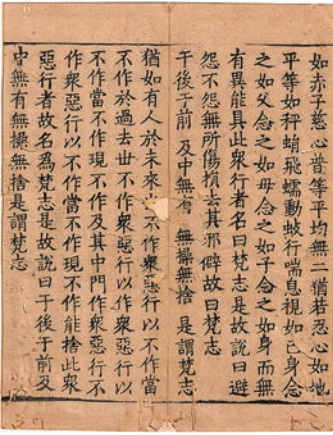 如赤子慈心普等平均無二猶若忍心如地
平等如秤蜎飛蠕動蚑行喘息視如己身念
之如父念之如母念之如子念之如身而無
有異能具此衆行者名曰梵志是故說曰避
怨不怨無所傷損去其邪僻故曰梵志
于後于前 及中無有 無操無捨 是謂梵志
猶如有人於未來 不作衆惡行以不作當
不作於過去世不作衆惡行以作衆惡行以
不作當不作現不作及其中間作衆惡行不
作衆惡行以不作當不作現不作能捨此衆
惡行者故名為梵志是故說曰于後于前及
中無有無操無捨是謂梵志